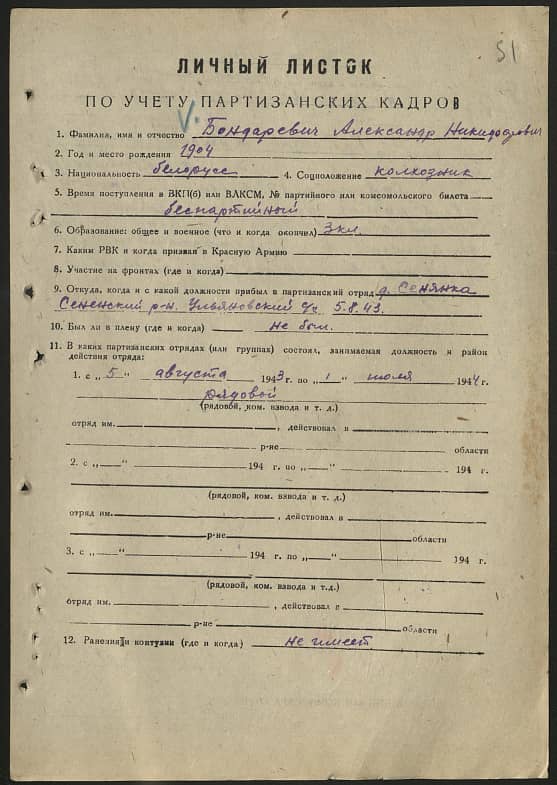 51
ЛИЧНЫЙ ЛИСТОК
ПО УЧЕТУ ПАРТИЗАНСКИХ КАДРОВ
1. Фамилия, имя и отчество Бондаревич Александр Никифорович
2. Год и место рождения 1904
3. Национальность белорусс 4. Соцположение колхозник
5. Время поступления в ВКП(б) или ВЛКСМ, № партийного или комсомольского билета
беспартийный
6. Образование: общее и военное (что и когда окончил) 3 кл.
7. Каким РВК и когда призван в Красную Армию
8. Участие на фронтах (где и когда)
9. Откуда, когда и с какой должности прибыл в партизанский отряд д. Сенянка
Сененский р-н. Ульяновский 5.8.43.
10. Был ли в плену (где и когда) не был.
11. В каких партизанских отрядах (или группах) состоял, занимаемая должность и район
действия отряда:
1. с „5" августа 1943 г. по „1" июля 1944 г.
рядовой
(рядовой, ком. взвода и т. д.)
отряд им. , действовал в
р-не области
2. с „ " 194 г. по „ " 194 г.
(рядовой, ком. взвода и т. д.)
отряд им. , действовал в
р-не области
3. с „ " 194 г. по „ " 194 г.
(рядовой, ком. взвода и т.д.)
отряд им. , действовал в
р-не области
12. Ранения и контузии (где и когда) не имеет